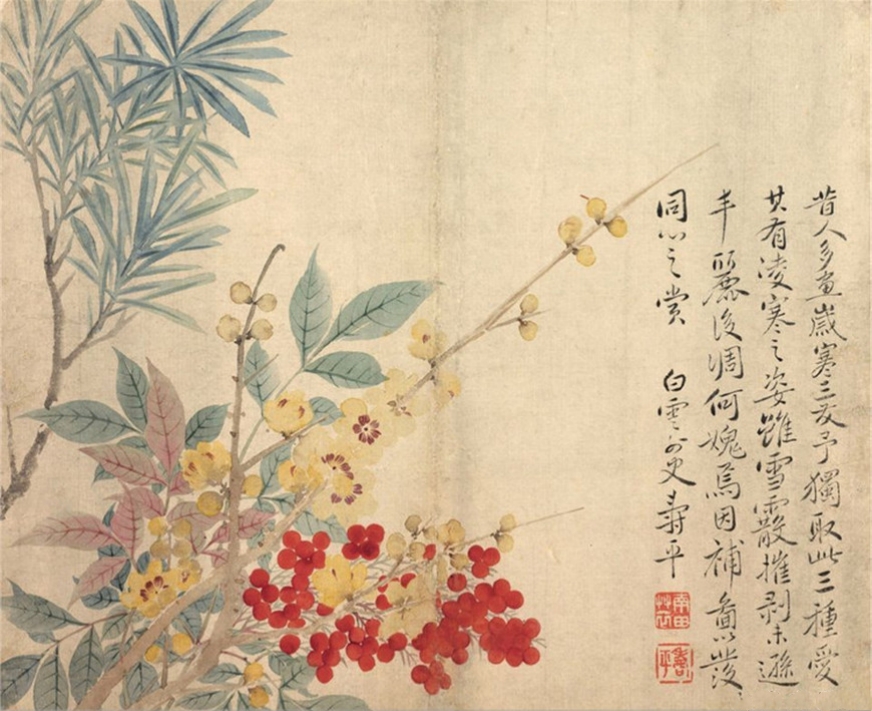 昔人多畫歲寒三友予獨取此三種愛
其有凌寒之姿雖雪霰摧剥未遜
丰麗後凋何愧焉因補圖以發
同心之賞 白雲外史壽平
壽平